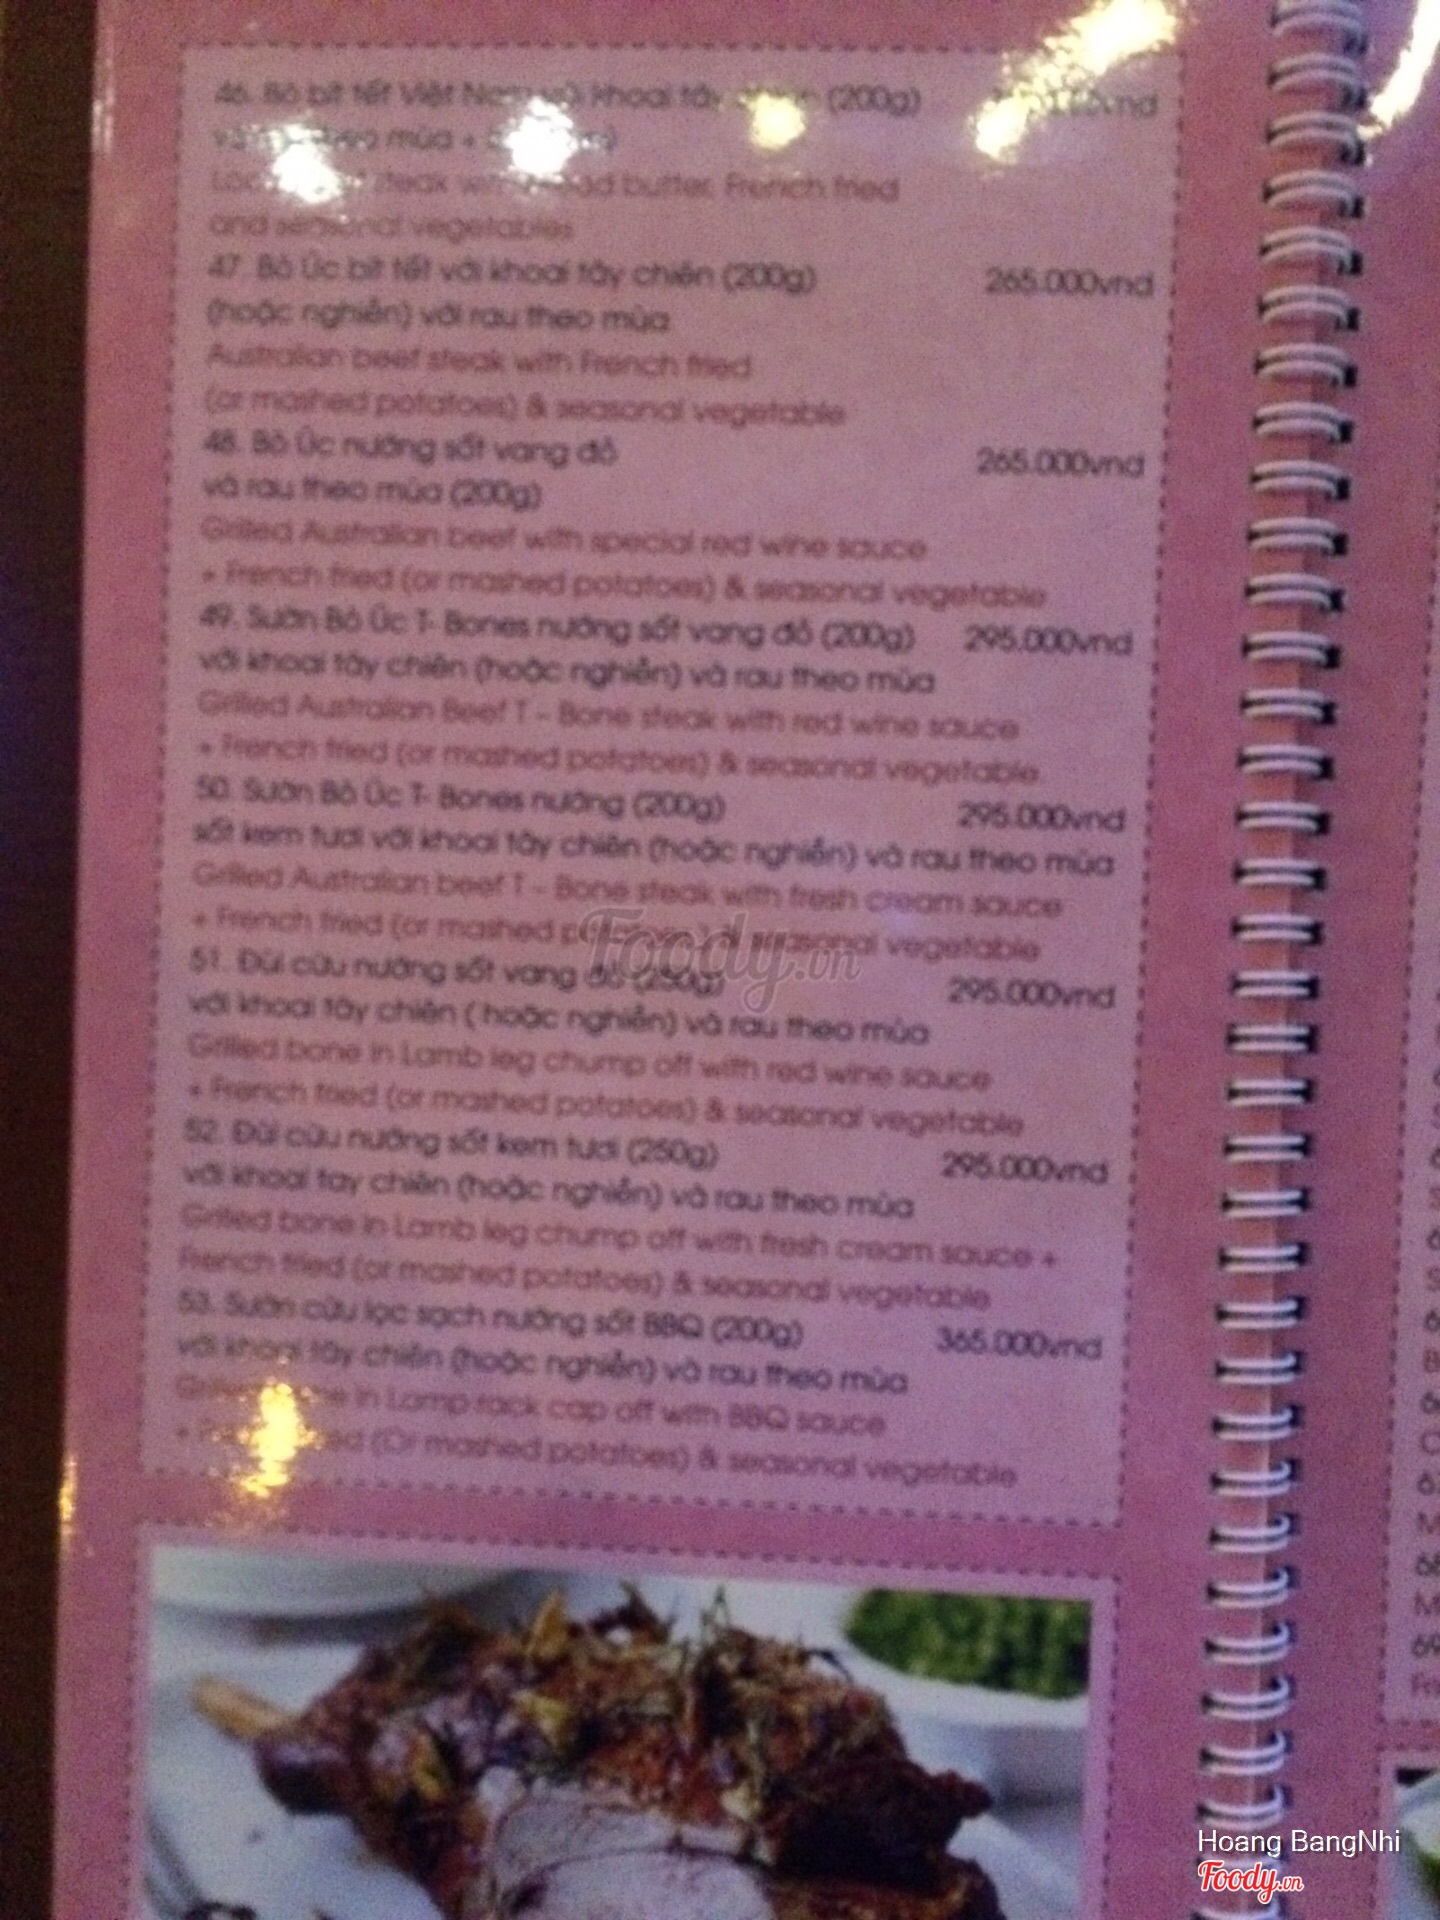 46. Bò bít tết Việt Nam với khoai tây (200g)
theo mùa +
steak butter, French fried
and seasonal vegetables
47. Bò Úc bít tết với khoai tây chiên (200g) 265.000vnd
(hoặc nghiền) với rau theo mùa
Australian beef steak with French fried
(or mashed potatoes) & seasonal vegetable
48. Bò Úc nướng sốt vang đỏ 265.000vnd
và rau theo mùa (200g)
Grilled Australian beef with special red wine sauce
+ French fried (or mashed potatoes) & seasonal vegetable
49. Sườn Bò Úc T- Bones nướng sốt vang đỏ (200g) 295.000vnd
với khoai tây chiên (hoặc nghiền) và rau theo mùa
Grilled Australian Beef T - Bone steak with red wine sauce
+ French fried (or mashed potatoes) & seasonal vegetable
50. Sườn Bò Úc T- Bones nướng (200g) 295.000vnd
sốt kem tươi với khoai tây chiên (hoặc nghiền) và rau theo mùa
Grilled Australian beef T - Bone steak with fresh cream sauce
+ French fried (or mashed potatoes) & seasonal vegetable
51. Đùi cừu nướng sốt vang đỏ (250g) 295.000vnd
với khoai tây chiên ( hoặc nghiền) và rau theo mùa
Grilled bone in Lamb leg chump off with red wine sauce
+ French fried (or mashed potatoes) & seasonal vegetable
52. Đùi cừu nướng sốt kem tươi (250g) 295.000vnd
với khoai tay chiên (hoặc nghiền) và rau theo mùa
Grilled bone in Lamb leg chump off with fresh cream sauce +
French fried (or mashed potatoes) & seasonal vegetable
53. Sườn cừu lọc sạch nướng sốt BBQ (200g) 365.000vnd
với khoai tây chiên (hoặc nghiền) và rau theo mùa
in Lamp rack cap off with BBQ sauce
+ (Or mashed potatoes) & seasonal vegetable
Foody.vn
Hoang BangNhi
Foody.vn